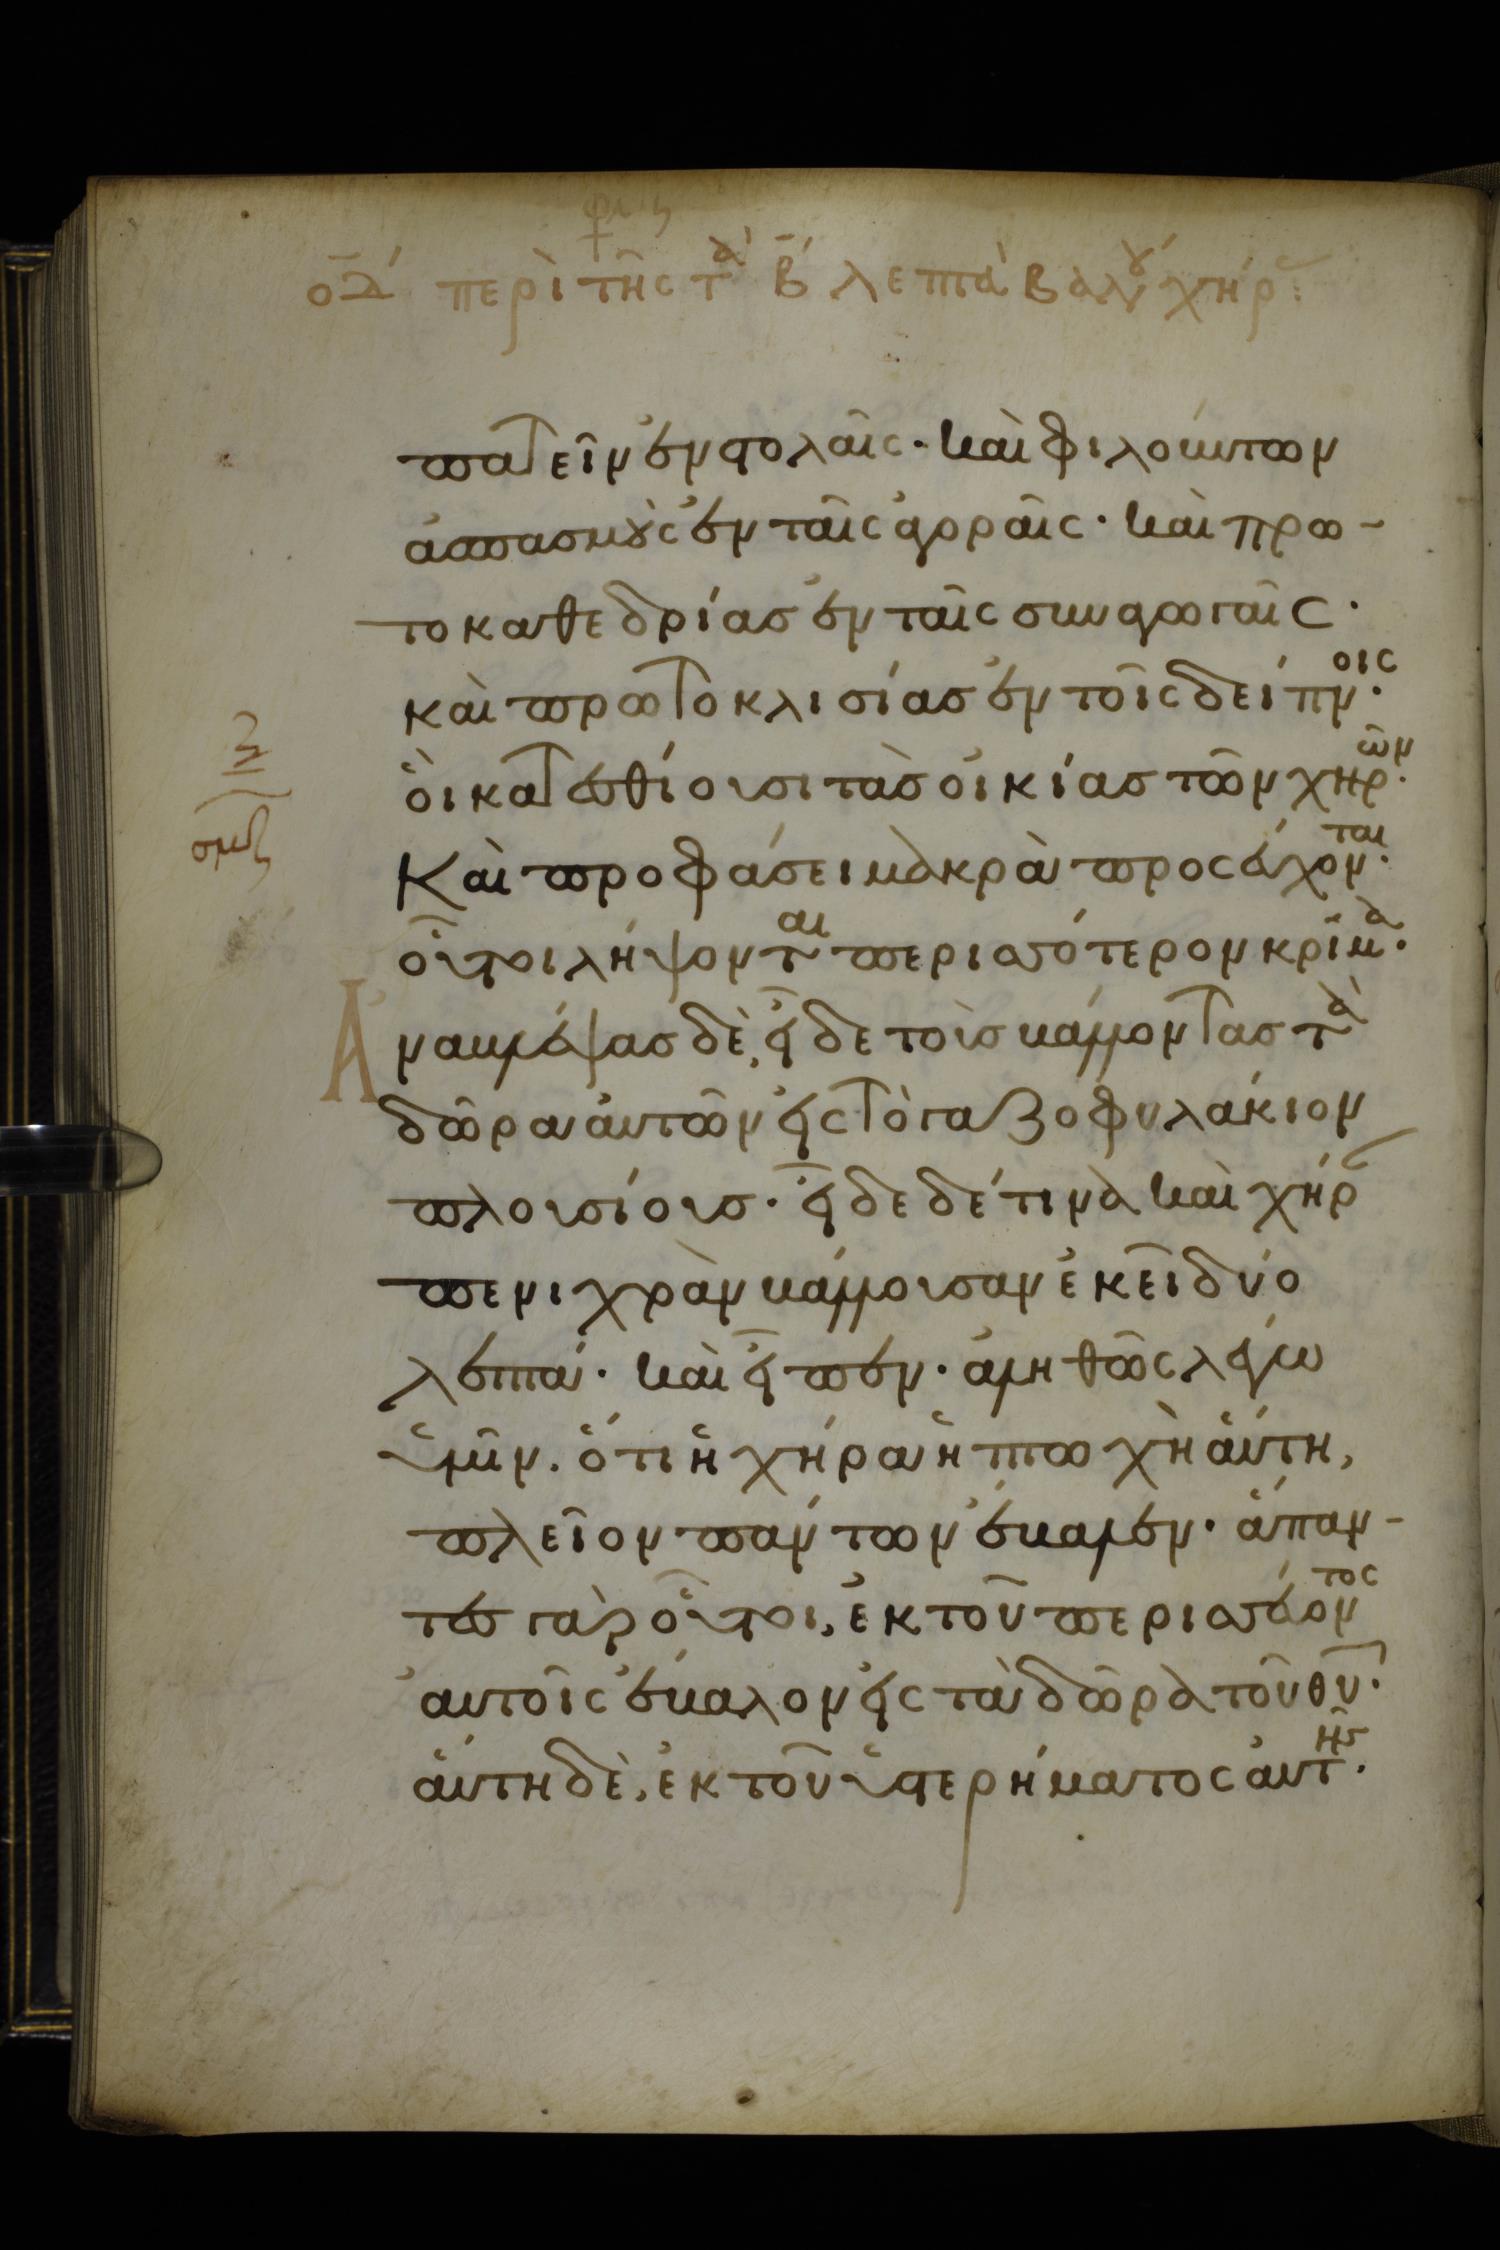 οδ περὶ τῆς τὰ β λεπτὰ βαλούσης χήρας
πατεῖν ἐν στολαῖς· καὶ φιλούντων
ἀσπασμοὺς ἐν ταῖς ἀγοραῖς· καὶ πρω-
τοκαθεδρίας ἐν ταῖς συναγωγαῖς·
καὶ πρωτοκλισίας ἐν τοῖς δείπνοις·
ὁι κατεσθίουσι τὰς οἰκίας τῶν χηρῶν·
Καὶ προφάσει μακρὰ προσεύχονται·
οὗτοι λήψονται περισσότερον κρῖμα·
Ἀναβλέψας δὲ, εἶδε τοὺς βάλλοντας τὰ
δῶρα αὐτῶν εἰς τὸ γαζοφυλάκιον
πλουσίους· εἶδε δέ τινα καὶ χήραν
πενιχρὰν βάλλουσαν ἐκεῖ δύο
λεπτά· καὶ εἶπεν· ἀληθῶς λέγω
ὑμῖν. ὅτι ἡ χήρα ἡ πτωχὴ ἅυτη,
πλεῖον πάντων ἔβαλεν· ἅπαν-
τες γὰρ οὗτοι, ἐκ τοῦ περισσεύοντος
αὐτοῖς ἔβαλον εἰς τὰ δῶρα τοῦ θυ·
ἅυτη δὲ, ἐκ τοῦ ὑστερήματος αὐτῆς·